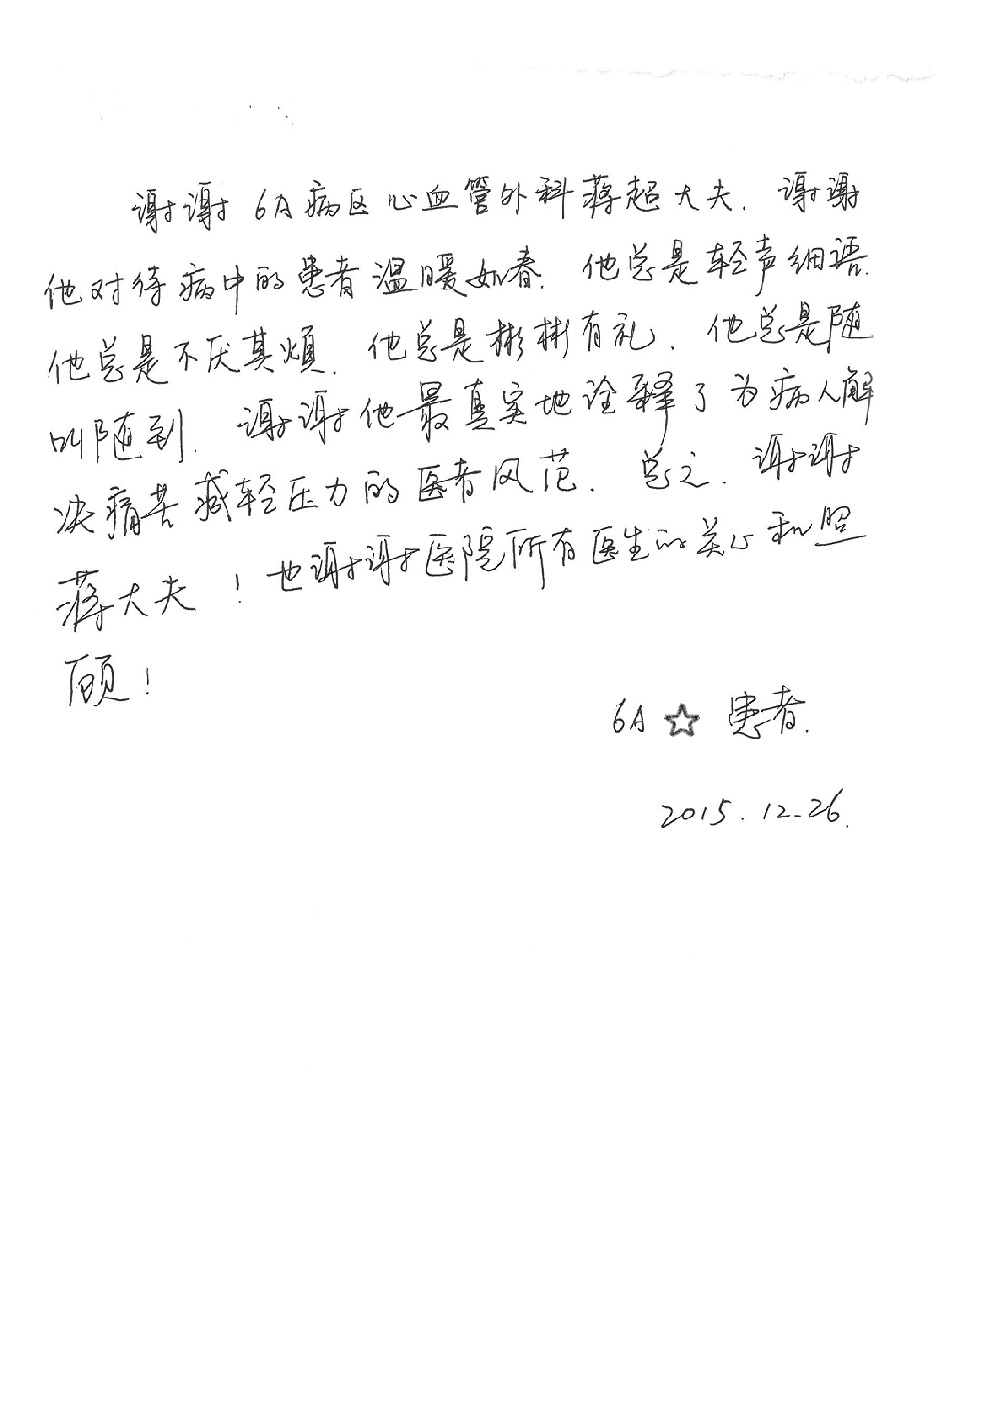 谢谢6A病区心血管外科蒋超大夫.谢谢
他对待病中的患者温暖如春.他总是轻声细语.
他总是不厌其烦.他总是彬彬有礼.他总是随
叫随到.谢谢他最真实地诠释了为病人解
决痛苦减轻压力的医者风范.总之.谢谢
蒋大夫!也谢谢医院所有医生的关心和照
顾!
6A☆患者.
2015.12-26.